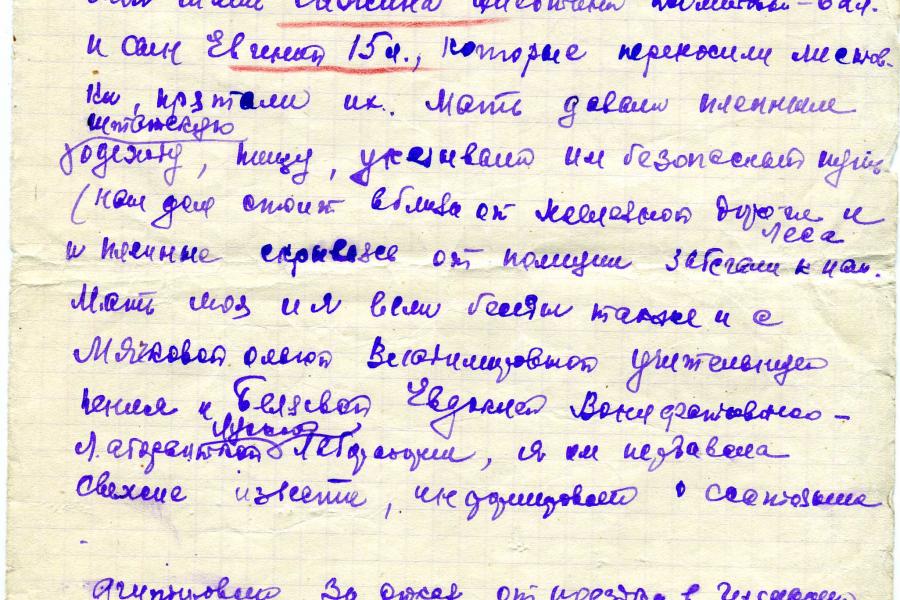 и сын Евгений 15 л., которые переносили листов-
ки, прятали их. Мать давала пленным
штатскую
одежду, пищу, указывала им безопасный путь
(наш дом стоит вблизи от железной дороги и
леса
и пленные скрываясь от полиции забегали к нам.
Мать моя и я вели беседы также и с
Мячковой Ольгой Владимировной учительницей
пения и Беляевой Евдокией Вонифатьевно-
лаборанткой лаборатории, я им передавала
свежие известия, информировала о
за отказ от